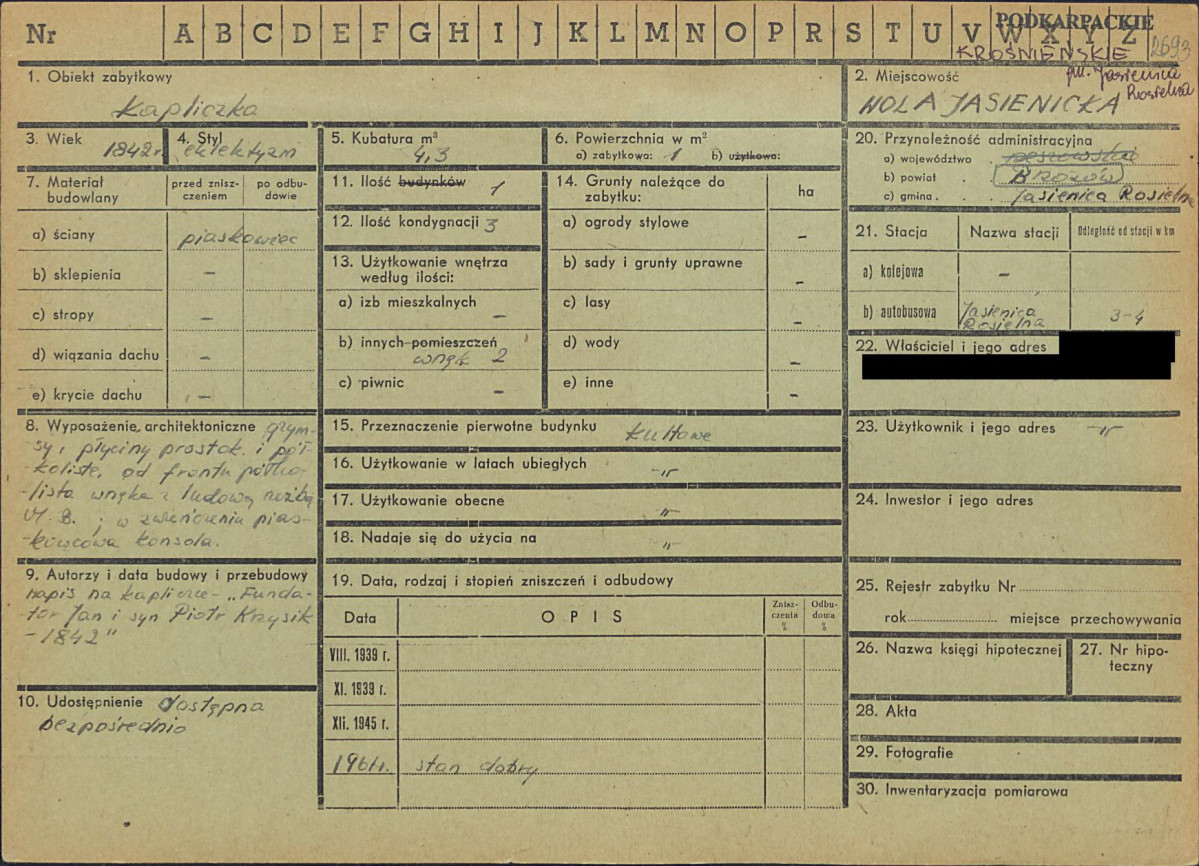 Nr A B C D E F G H I J K L M N O P R S T U V W X Y Z
PODKARPACKIE
KROŚNIEŃSKIE
2693
gm. Jasienica
Rosielna
1. Obiekt zabytkowy
Kapliczka
2. Miejscowość
WOLA JASIENICKA
3. Wiek
1842 r.
4. Styl
eklektyzm
5. Kubatura m³
4,3
6. Powierzchnia w m²
a) zabytkowa: 1 b) użytkowa:
7. Materiał budowlany
przed znisz-
czeniem
po odbu-
dowie
a) ściany piaskowiec
b) sklepienia –
c) stropy –
d) wiązania dachu –
e) krycie dachu –
8. Wyposażenie architektoniczne gzym-
sy, płyciny prostok. i pół-
koliste, od frontu półko-
lista wnęka z ludową rzeźbą
M.B.; w zwieńczeniu pias-
kowcowa konsola.
9. Autorzy i data budowy i przebudowy
napis na kapliczce – „Funda-
tor Jan i syn Piotr Krzysik
– 1842"
10. Udostępnienie dostępna
bezpośrednio
11. Ilość budynków 1
12. Ilość kondygnacji 3
13. Użytkowanie wnętrza
według ilości:
a) izb mieszkalnych –
b) innych pomieszczeń
wnęk 2
c) piwnic –
14. Grunty należące do
zabytku:
ha
a) ogrody stylowe –
b) sady i grunty uprawne –
c) lasy –
d) wody –
e) inne –
15. Przeznaczenie pierwotne budynku kultowe
16. Użytkowanie w latach ubiegłych –"–
17. Użytkowanie obecne –"–
18. Nadaje się do użycia na –"–
19. Data, rodzaj i stopień zniszczeń i odbudowy
Data
OPIS
Znisz-
czenia
%
Odbu-
dowa
%
VIII. 1939 r.
XI. 1939 r.
XII. 1945 r.
1964r. stan dobry
20. Przynależność administracyjna
a) województwo rzeszowskie
b) powiat Brzozów
c) gmina Jasienica Rosielna
21. Stacja
Nazwa stacji
Odległość od stacji w km
a) kolejowa –
b) autobusowa Jasienica
Rosielna
3-4
22. Właściciel i jego adres
23. Użytkownik i jego adres –"–
24. Inwestor i jego adres
25. Rejestr zabytku Nr
rok miejsce przechowywania
26. Nazwa księgi hipotecznej
27. Nr hipo-
teczny
28. Akta
29. Fotografie
30. Inwentaryzacja pomiarowa